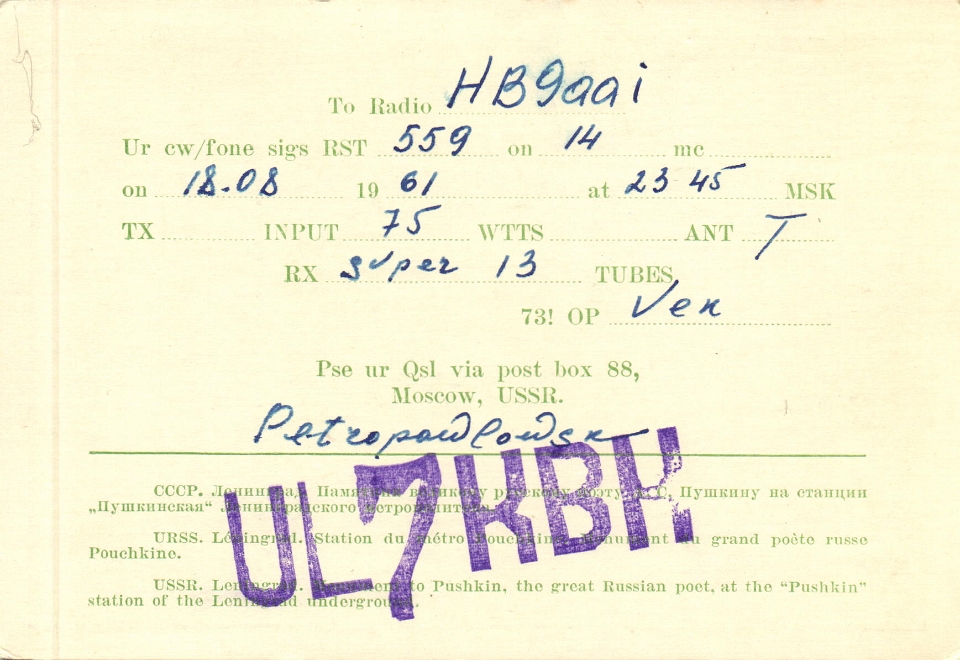 To Radio HB9aai
Ur cw/fone sigs RST 559 on 14 mc
on 18.08 1961 at 23 45 MSK
TX INPUT 75 WTTS ANT T
RX super 13 TUBES
73! OP Ven
Pse ur Qsl via post box 88,
Moscow, USSR.
Petropawlowsk
UL7KBK
СССР. Ленинград. Памятник великому русскому поэту А. С. Пушкину на станции
„Пушкинская“ Ленинградского метрополитена.
URSS. Léningrad. Station du métro Pouchkine. Monument du grand poète russe
Pouchkine.
USSR. Leningrad. Monument to Pushkin, the great Russian poet, at the “Pushkin”
station of the Leningrad underground.